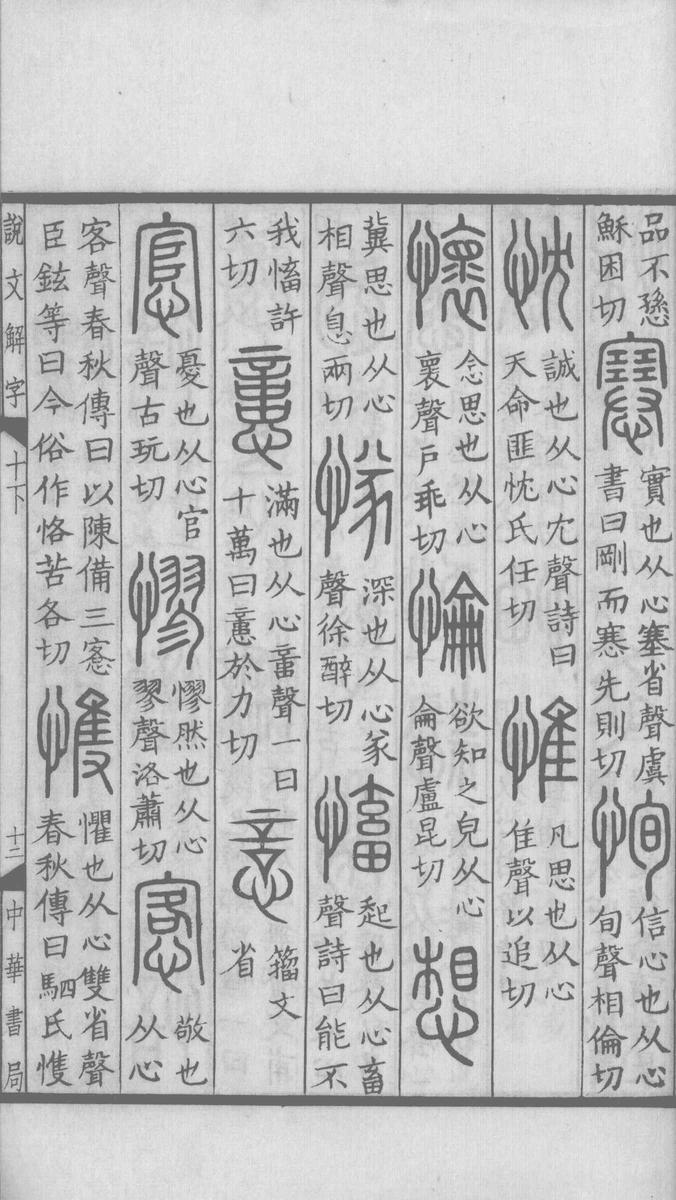 品不愻穌困切㥶實也从心塞省聲虞書曰剛而㥶先則切恂信心也从心旬聲相倫切
忱誠也从心冘聲詩曰天命匪忱氏任切惟凡思也从心隹聲以追切
懷念思也从心褱聲戶乖切惀欲知之皃从心侖聲盧昆切想
冀思也从心相聲息兩切㥞深也从心㒸聲徐醉切慉起也从心畜聲詩曰能不
我慉許六切𢡃滿也从心𠶷聲一曰十萬曰𢡃於力切籀文省
悹憂也从心官聲古玩切憀憀然也从心翏聲洛蕭切愙敬也从心
客聲春秋傳曰以陳備三愙臣鉉等曰今俗作恪苦各切愯懼也从心雙省聲春秋傳曰駟氏愯
說文解字 十下 十二 中華書局